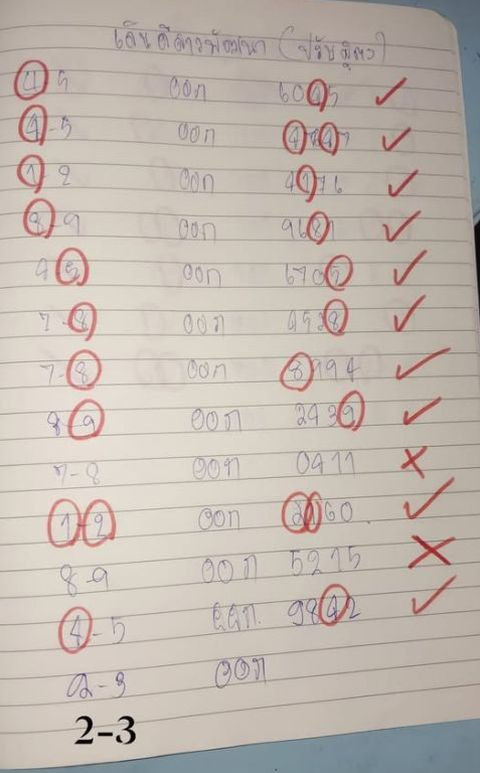 เด่นดีลาวพัฒนา (ปรับสูตร)
4-5 ออก 6045 ✓
4-5 ออก 4747 ✓
1-2 ออก 4176 ✓
8-9 ออก 9681 ✓
4-5 ออก 6705 ✓
7-8 ออก 4528 ✓
7-8 ออก 8994 ✓
8-9 ออก 2439 ✓
7-8 ออก 0411 ✗
1-2 ออก 2160 ✓
8-9 ออก 5215 ✗
4-5 ออก 9842 ✓
2-3 ออก
2-3